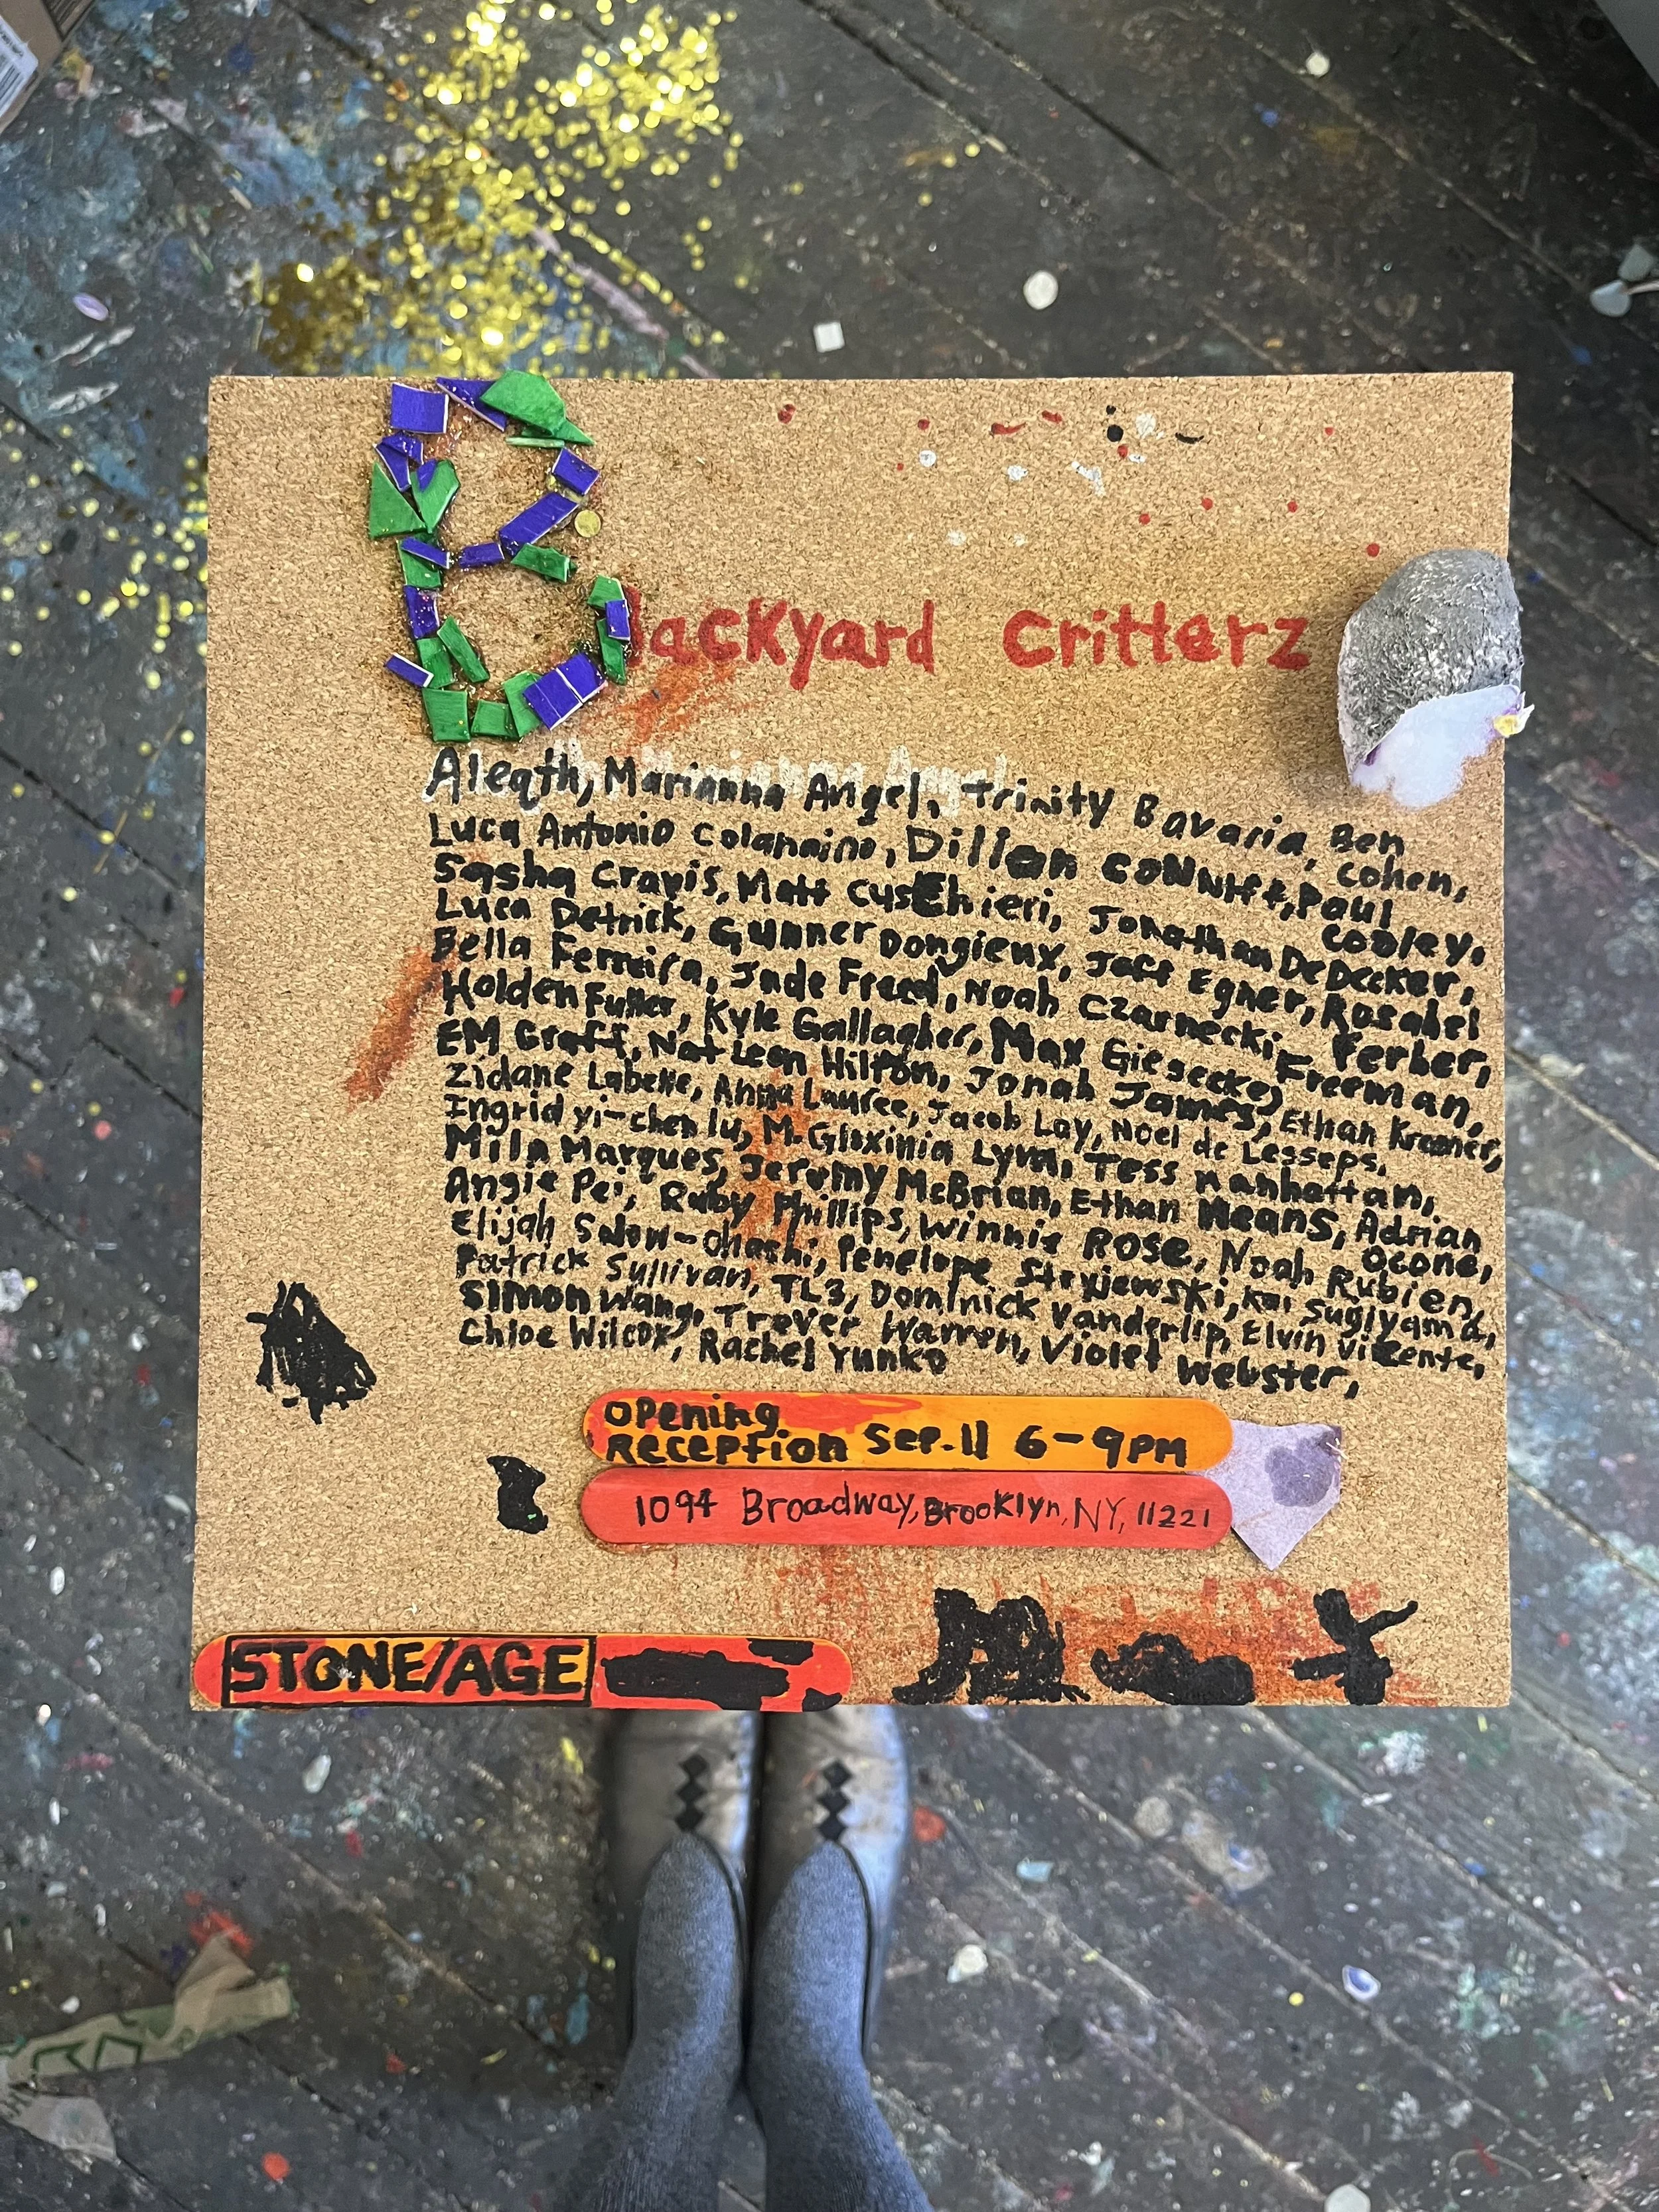 Backyard Critterz
Aleqth, Marianna Angel, Trinity Bavaria, Ben Cohen,
Luca Antonio Colannino, Dillon Conniff, Paul Cooley,
Sasha Cravis, Matt Cuschieri, Jonathan DeDecker,
Luca Detrick, Gunner Dongieux, Jack Egner, Rosabel Ferber,
Bella Ferreira, Jude Freed, Noah Czarnecki, Freeman,
Holden Fuller, Kyle Gallagher, Max Giesecke,
EM Graff, Nat Leon Hilton, Jonah James, Ethan Kramer,
Zidane Labelle, Anna Laufee, Jacob Lay, Noel de Lesseps,
Ingrid yi-chen lu, M. Gloxinia Lyrm, Tess Manhattan,
Mila Marques, Jeremy McBrian, Ethan Means, Adrian Ocone,
Angie Pei, Ruby Phillips, Winnie Rose, Noah Rubien,
Elijah Snow-Ohashi, Penelope Stryjewski, Kai Sugiyama,
Patrick Sullivan, TL3, Dominick Vanderlip, Elvin Vicente,
Simon Wang, Trever Warren, Violet Webster,
Chloe Wilcox, Rachel Yunko
Opening
Reception Sep. 11 6-9PM
1094 Broadway, Brooklyn, NY, 11221
STONE/AGE